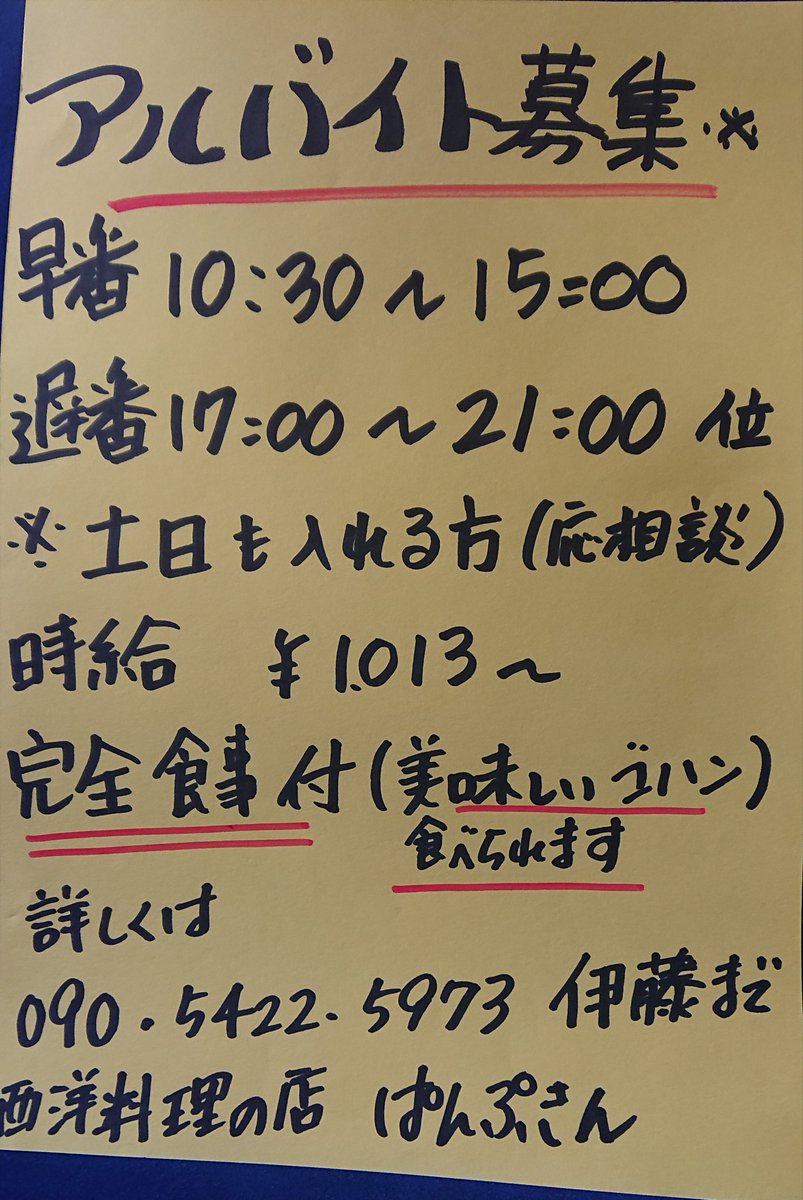 アルバイト募集※
早番 10:30～15:00
遅番 17:00～21:00 位
※土日も入れる方(応相談)
時給 ¥1.013～
完全食事付(美味しいゴハン)
食べられます
詳しくは
090.5422.5973 伊藤まで
西洋料理の店 ぱんぷきん